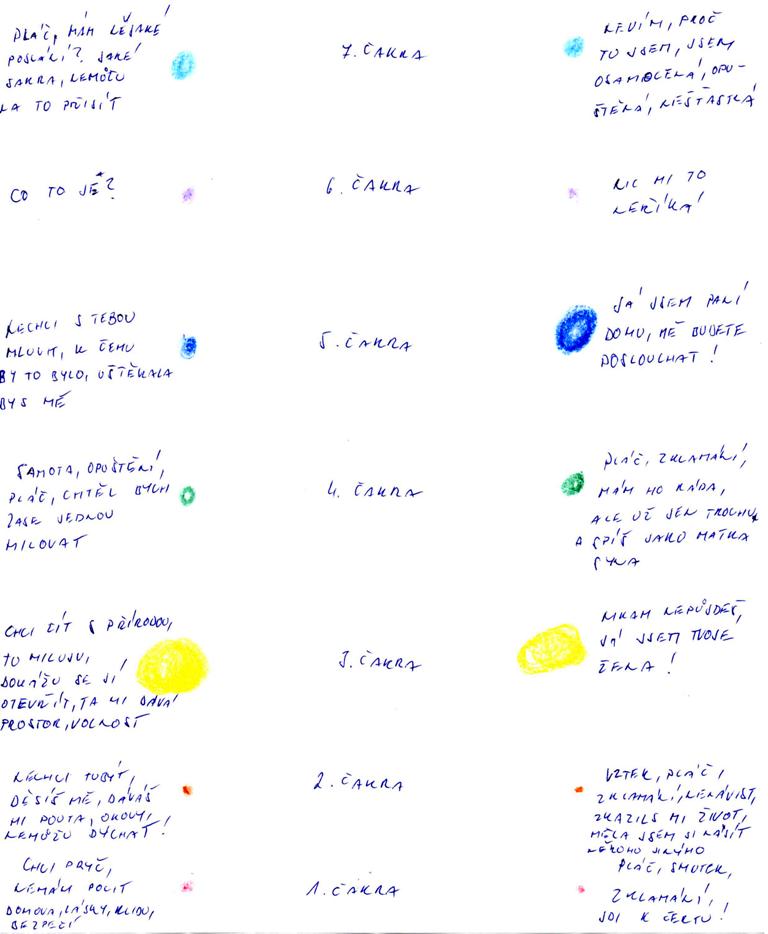 PLÁČ, MÁM NĚJAKÉ
POSLÁNÍ? JAKÉ
SAKRA, NEMŮŽU
NA TO PŘIJÍT
7. ČAKRA
NEVÍM, PROČ
TU JSEM, JSEM
OSAMOCENÁ, OPU-
ŠTĚNÁ, NEŠŤASTNÁ
CO TO JE?
6. ČAKRA
NIC MI TO
NEŘÍKÁ
NECHCI S TEBOU
MLUVIT, K ČEMU
BY TO BYLO, UŠTĚKALA
BYS MĚ
5. ČAKRA
JÁ JSEM PANÍ
DOMU, MĚ BUDETE
POSLOUCHAT!
SAMOTA, OPUŠTĚNÍ,
PLÁČ, CHTĚL BYCH
ZASE JEDNOU
MILOVAT
4. ČAKRA
PLÁČ, ZKLAMÁNÍ,
MÁM HO RÁDA,
ALE UŽ JEN TROCHU,
A SPÍŠ JAKO MATKA
SYNA
CHCI ŽÍT S PŘÍRODOU,
TU MILUJU,
DOKÁŽU SE JÍ
OTEVŘÍT, TA MI DÁVÁ
PROSTOR, VOLNOST
3. ČAKRA
NIKAM NEPŮJDEŠ,
JÁ JSEM TVOJE
ŽENA!
NECHCI TU BÝT,
DĚSÍŠ MĚ, DÁVÁŠ
MI POUTA, OKOVY,
NEMŮŽU DÝCHAT!
2. ČAKRA
VZTEK, PLÁČ,
ZKLAMÁNÍ, NENÁVIST,
ZKAZILS MI ŽIVOT,
MĚLA JSEM SI NAJÍT
NĚKOHO JINÉHO
CHCI PRYČ,
NEMÁM POCIT
DOMOVA, LÁSKY, KLIDU,
BEZPEČÍ
1. ČAKRA
PLÁČ, SMUTEK,
ZKLAMÁNÍ,
JDI K ČERTU!